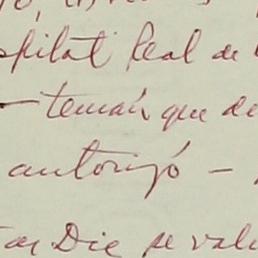 spital Real de
— temán, que de
autorizó —
Die se vale